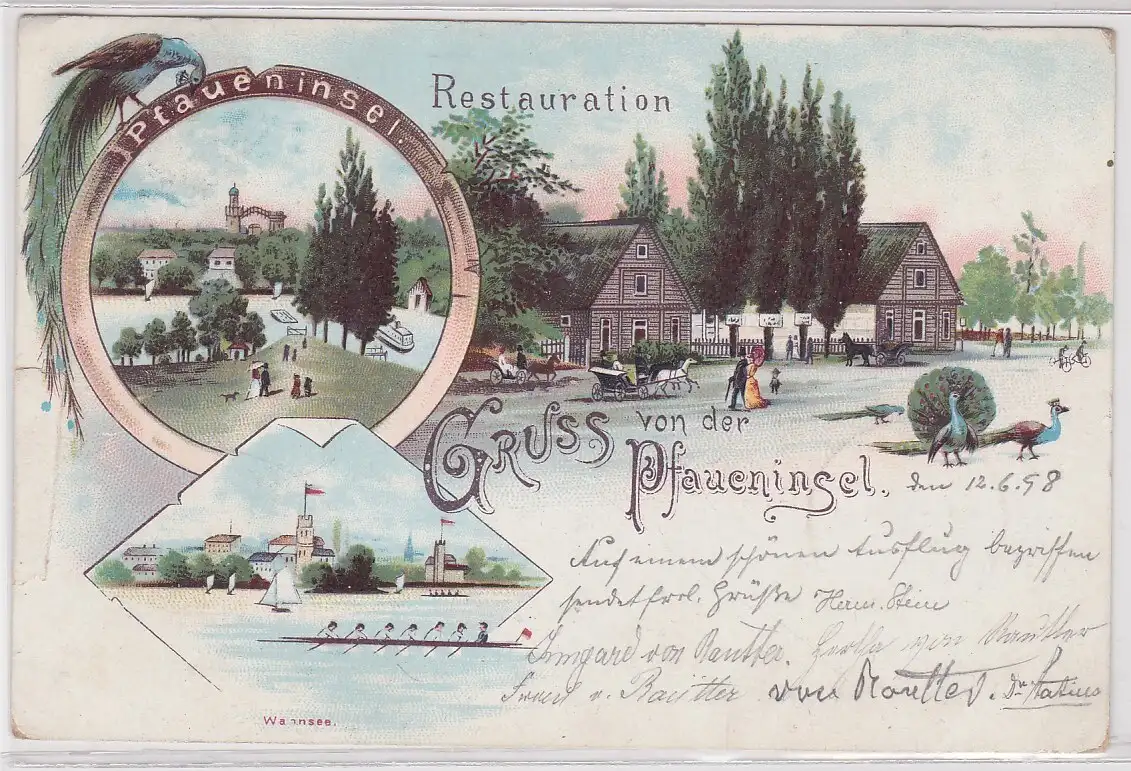 Pfaueninsel.
Restauration
Gruss von der
Pfaueninsel.
den 12.6.98
Auf einem schönen Ausflug begriffen
sendet frdl. Grüße Herm. Stein
Irmgard von Rautter. Hertha von Rautter
v. Rautter von Rautter. Dr.
Wannsee.